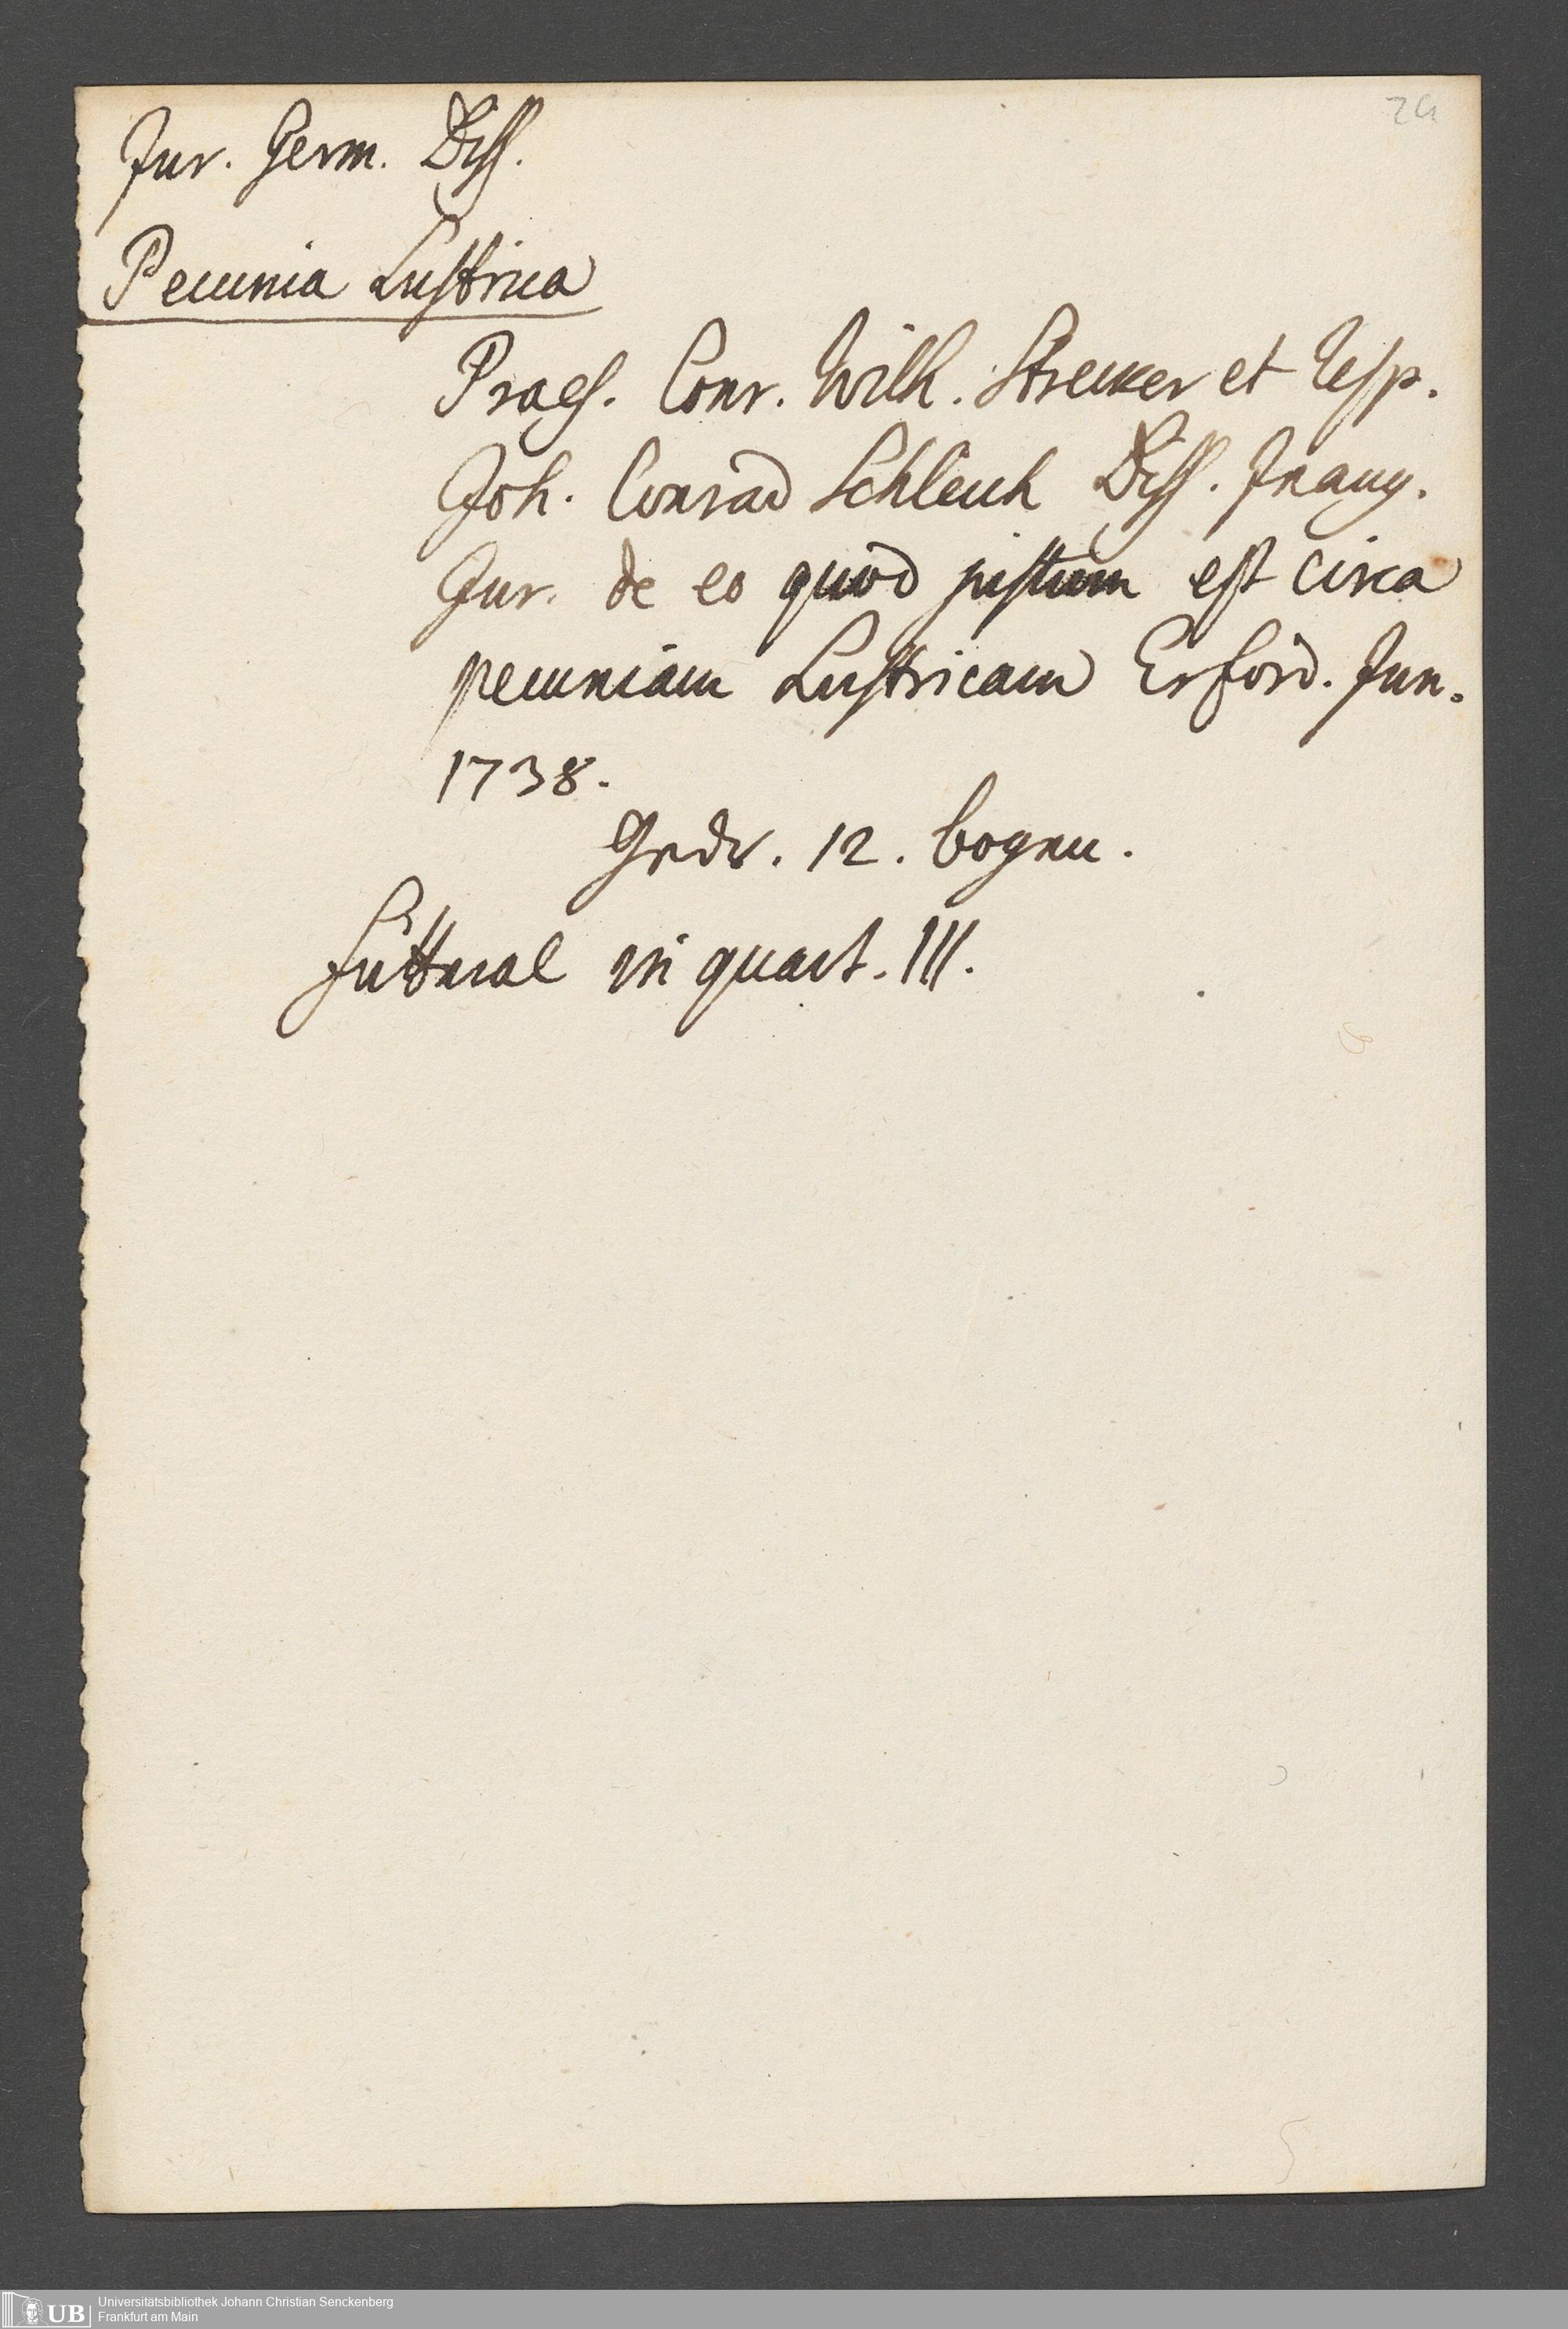 24
Jur. Germ. Diss.
Pecunia Lustrica
Praes. Conr. Wilh. Strecker et Resp.
Joh. Conrad Schleich Diss. Inaug.
Jur. de eo quod justum est circa
pecuniam Lustricam Erford. Jun.
1738.
12. bogen.
Futteral in quart. III.
UB
Universitätsbibliothek Johann Christian Senckenberg
Frankfurt am Main